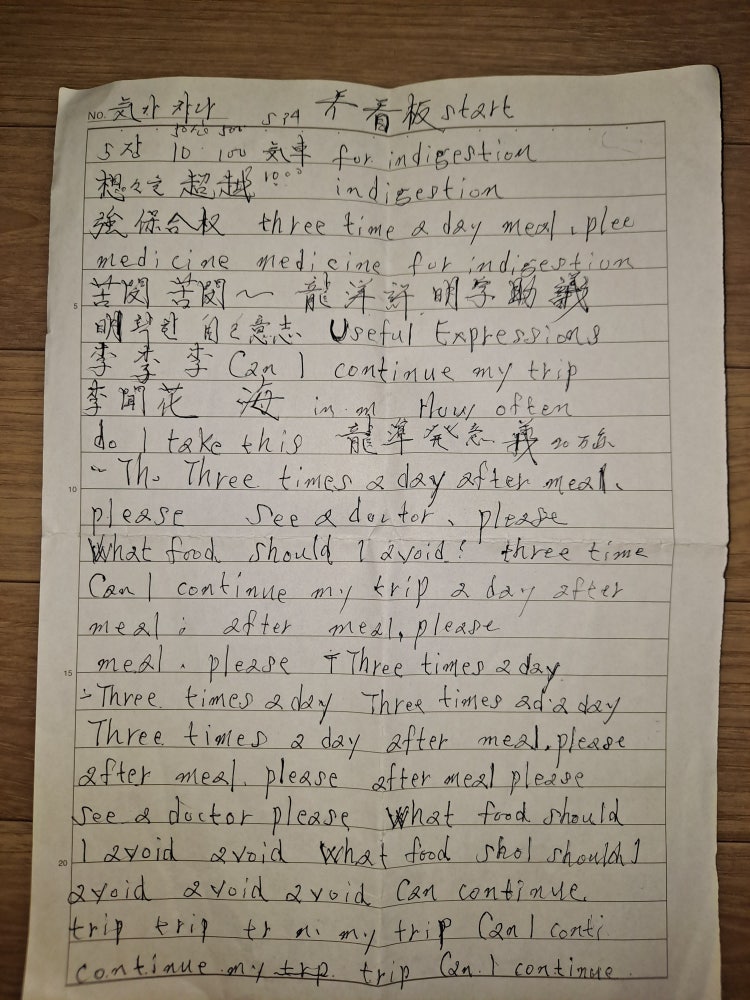 NO. 気가 차나 看看板 start
5장 10 100 気車 for indigestion
想々 超越 1000 indigestion
強 保合权 three time a day meal, plee
medicine medicine for indigestion
苦悶 苦悶~ 龍 洋 詳 明 字 助 義
5
明 意志 Useful Expressions
李 李 李 Can I continue my trip
李 聞 花 海 in m How often
do I take this 龍 準 発 意 義
~ Th. Three times a day after meal.
10
please See a doctor, please
What food should I avoid? three time
Can I continue my trip a day after
meal : after meal, please
meal. please Three times a day
15
Three times a day Three times ad a day
Three times a day after meal, please
after meal. please after meal please
see a doctor please What food should
I avoid avoid What food shol should I
20
avoid avoid avoid Can continue.
trip trip tr n. my trip Can I conti
continue my trp. trip Can I continue.